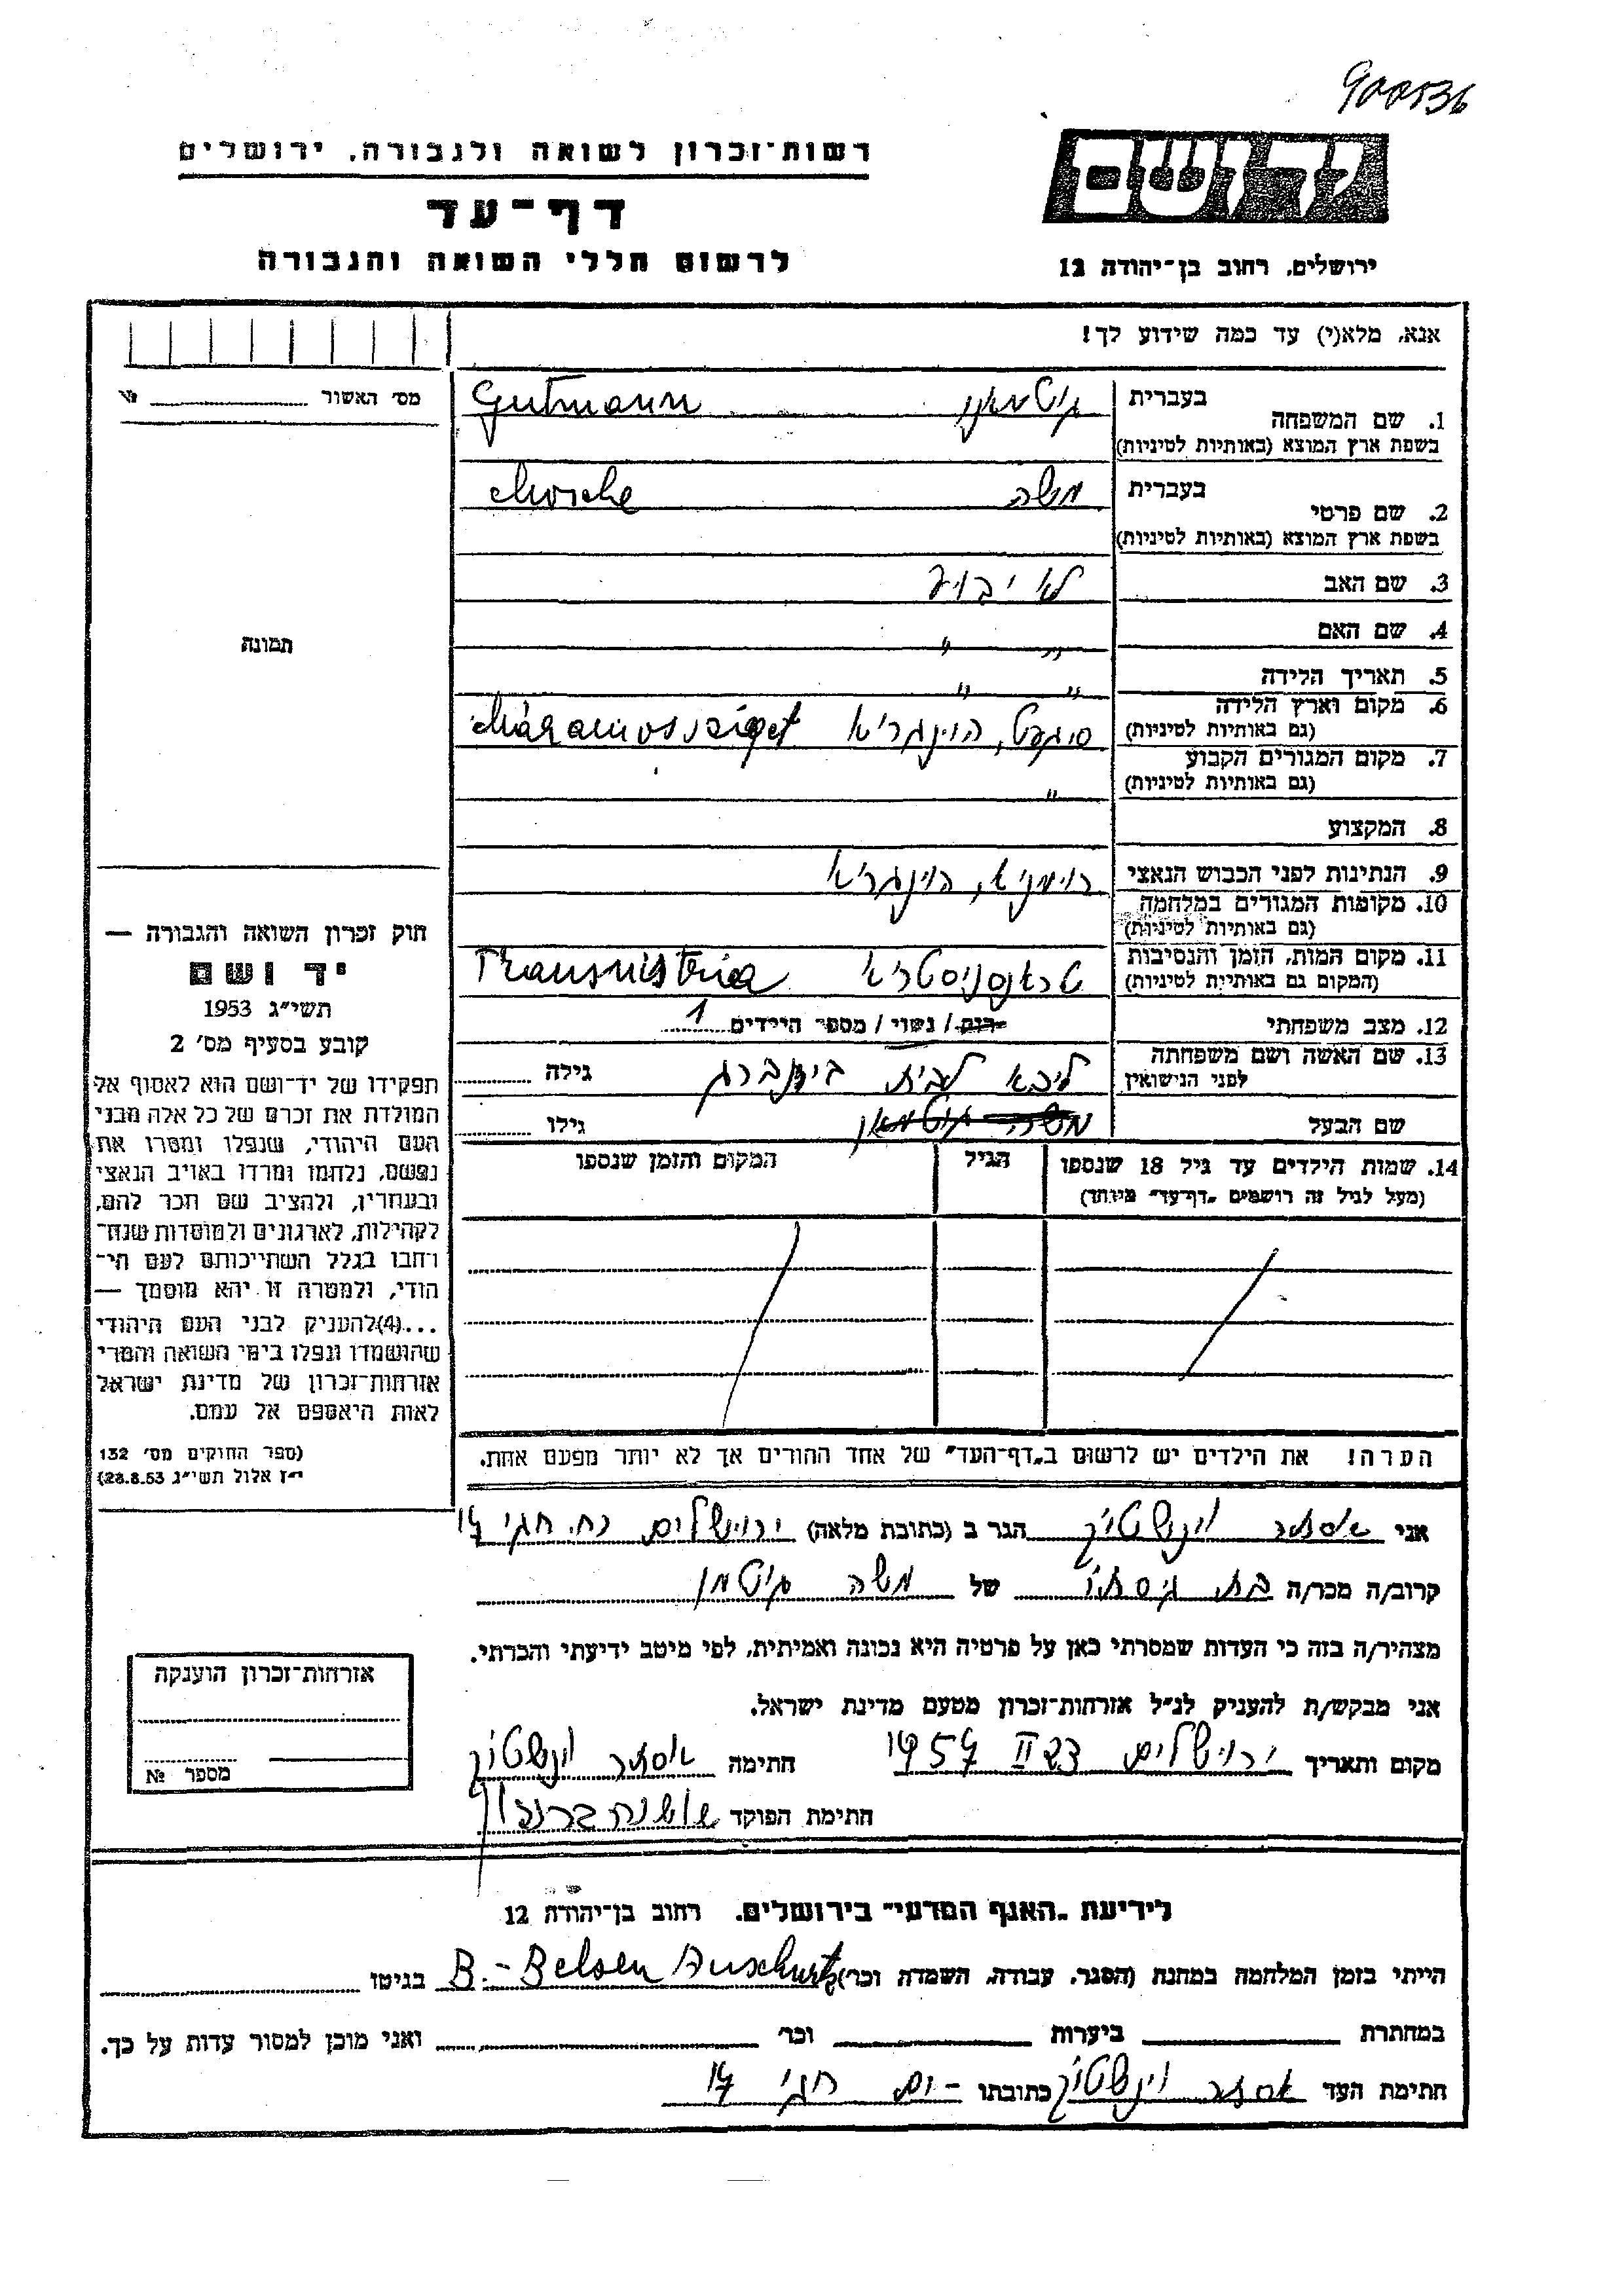 900536
רשות־זכרון לשואה ולגבורה, ירושלים
דף־עד
לרשום חללי השואה והגבורה
יד ושם
ירושלים, רחוב בן־יהודה 12
אנא, מלא(י) עד כמה שידוע לך!
מס׳ האשור №
תמונה
בעברית גוטמאן Gutmann
1. שם המשפחה
בשפת ארץ המוצא (באותיות לטיניות)
בעברית משה Mosche
2. שם פרטי
בשפת ארץ המוצא (באותיות לטיניות)
3. שם האב לא ידוע
4. שם האם " "
5. תאריך הלידה " "
6. מקום וארץ הלידה סיגעט, הונגריא Máramossziget
(גם באותיות לטיניות)
7. מקום המגורים הקבוע "
(גם באותיות לטיניות)
8. המקצוע
9. הנתינות לפני הכבוש הנאצי רומניא, הונגריא
10. מקומות המגורים במלחמה
(גם באותיות לטיניות)
11. מקום המות, הזמן והנסיבות טראנסניסטריא Transnistria
(המקום גם באותיות לטיניות)
12. מצב משפחתי רוק / נשוי / מספר הילדים 1
13. שם האשה ושם משפחתה ליבא לבית גילה
לפני הנישואין
שם הבעל משה גוטמאן גילו
14. שמות הילדים עד גיל 18 שנספו הגיל המקום והזמן שנספו
(מעל לגיל זה רושמים „דף־עד" מיוחד)
הערה! את הילדים יש לרשום ב„דף־העד" של אחד ההורים אך לא יותר מפעם אחת.
חוק זכרון השואה והגבורה —
יד ושם
תשי״ג 1953
קובע בסעיף מס׳ 2
תפקידו של יד־ושם הוא לאסוף אל
המולדת את זכרם של כל אלה מבני
העם היהודי, שנפלו ומסרו את
נפשם, נלחמו ומרדו באויב הנאצי
ובעוזריו, ולהציב שם וזכר להם,
לקהילות, לארגונים ולמוסדות שנח־
רחבו בגלל השתייכותם לעם הי־
הודי, ולמטרה זו יהא מוסמך —
...(4)להעניק לבני העם היהודי
שהושמדו ונפלו בימי השואה והמרי
אזרחות־זכרון של מדינת ישראל
לאות היאספם אל עמם.
(ספר החוקים מס׳ 132
י״ז אלול תשי״ג 28.8.53)
אני אסתר וינשטוק הגר ב (כתובת מלאה) ירושלים רח. חגי 14
קרוב/ה מכר/ה בת גיסתו של משה גוטמן
מצהיר/ה בזה כי העדות שמסרתי כאן על פרטיה היא נכונה ואמיתית, לפי מיטב ידיעתי והכרתי.
אני מבקש/ת להעניק לנ״ל אזרחות־זכרון מטעם מדינת ישראל.
מקום ותאריך ירושלים II 1957 חתימה אסתר וינשטוק
חתימת הפוקד
אזרחות־זכרון הוענקה
מספר №
לידיעת „האגף המדעי" בירושלים, רחוב בן־יהודה 12
הייתי בזמן המלחמה במחנה (הסגר, עבודה, השמדה וכו׳) B.-Belsen Auschwitz בגיטו
במחתרת ביערות וכו׳ ואני מוכן למסור עדות על כך.
חתימת העד אסתר וינשטוק כתובתו חגי 14